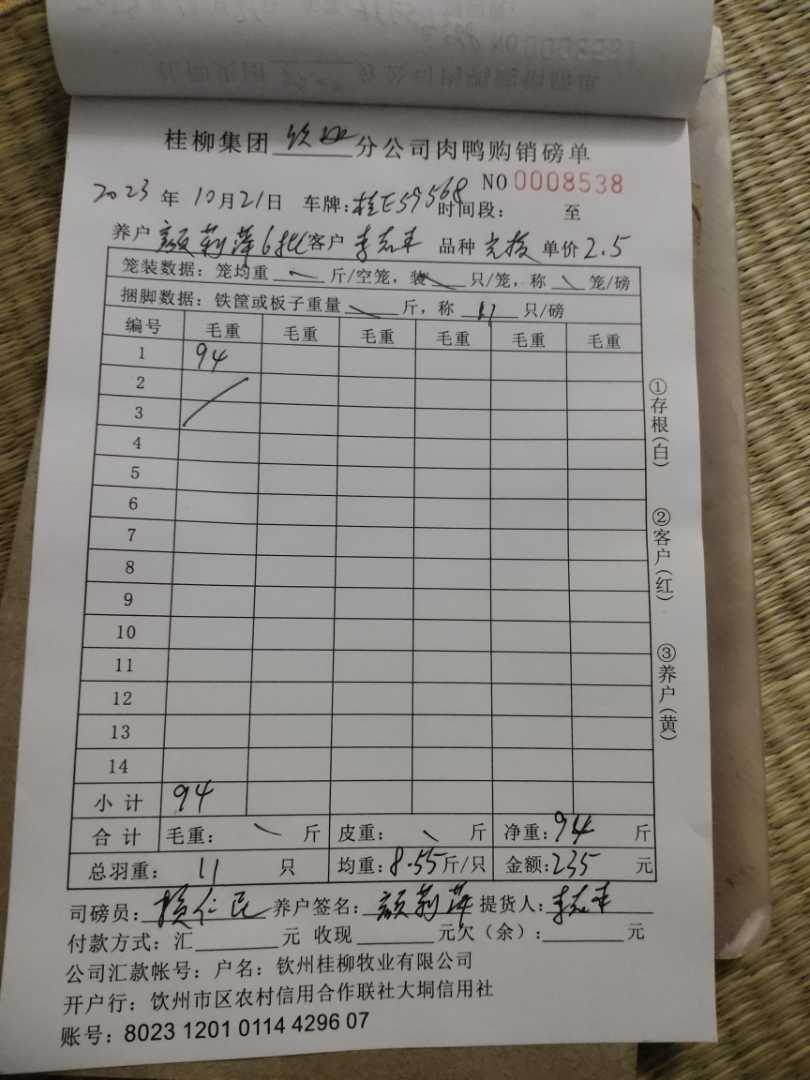 桂柳集团 钦州 分公司肉鸭购销磅单
NO 0008538
2023 年 10月21日 车牌:桂E59568 时间段: 至
养户 颜莉萍6批 客户 李志丰 品种 单价 2.5
笼装数据: 笼均重 斤/空笼, 装 只/笼, 称 笼/磅
捆脚数据: 铁筐或板子重量 斤, 称 11 只/磅
编号 毛重 毛重 毛重 毛重 毛重 毛重
1 94
2
3
4
5
6
7
8
9
10
11
12
13
14
小 计 94
合 计 毛重: 斤 皮重: 斤 净重: 94 斤
总羽重: 11 只 均重: 8.55 斤/只 金额: 235 元
司磅员: 仁民 养户签名: 颜莉萍 提货人: 李志丰
付款方式: 汇 元 收现 元欠(余): 元
公司汇款帐号: 户名: 钦州桂柳牧业有限公司
开户行: 钦州市区农村信用合作联社大垌信用社
账号: 8023 1201 0114 4296 07
①存根(白)
②客户(红)
③养户(黄)